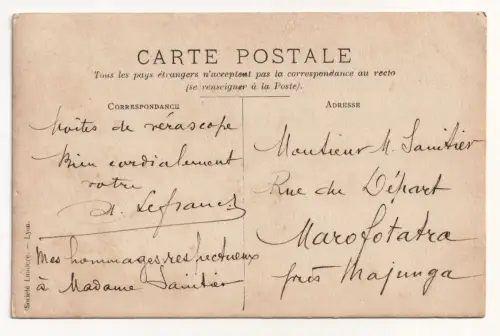 CARTE POSTALE
Tous les pays étrangers n'acceptent pas la correspondance au recto
(se renseigner à la Poste).
CORRESPONDANCE
boîtes de vérascope
Bien cordialement
votre
A. Lefranc
Mes hommages respectueux
à Madame Sanitier
ADRESSE
Monsieur M. Sanitier
Rue du Départ
Marofotatra
près Majunga
Société Lumière. — Lyon.